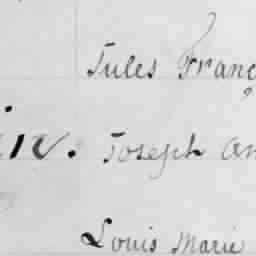 Jules Franç
Joseph an
Louis Marie